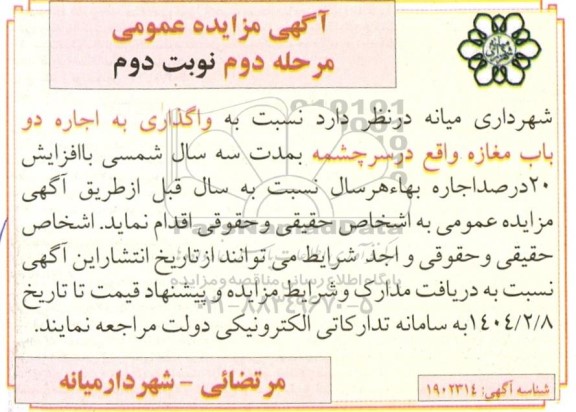 آگهی مزایده عمومی
مرحله دوم نوبت دوم
شهرداری میانه درنظر دارد نسبت به واگذاری به اجاره دو
باب مغازه واقع درسرچشمه بمدت سه سال شمسی باافزایش
۲۰درصداجاره بهاءهرسال نسبت به سال قبل ازطریق آگهی
مزایده عمومی به اشخاص حقیقی وحقوقی اقدام نماید. اشخاص
حقیقی وحقوقی و اجد شرایط می توانند ازتاریخ انتشاراین آگهی
نسبت به دریافت مدارک وشرایط مزایده و پیشنهاد قیمت تا تاریخ
۱۴۰۴/۲/۸به سامانه تدارکاتی الکترونیکی دولت مراجعه نمایند.
مرتضائی - شهردارمیانه
شناسه آگهی: ۱۹۰۲۳۱۴
پایگاه اطلاع رسانی مناقصه و مزایده
۰۲۱-۸۸۳۴۹۶۷۰-۵